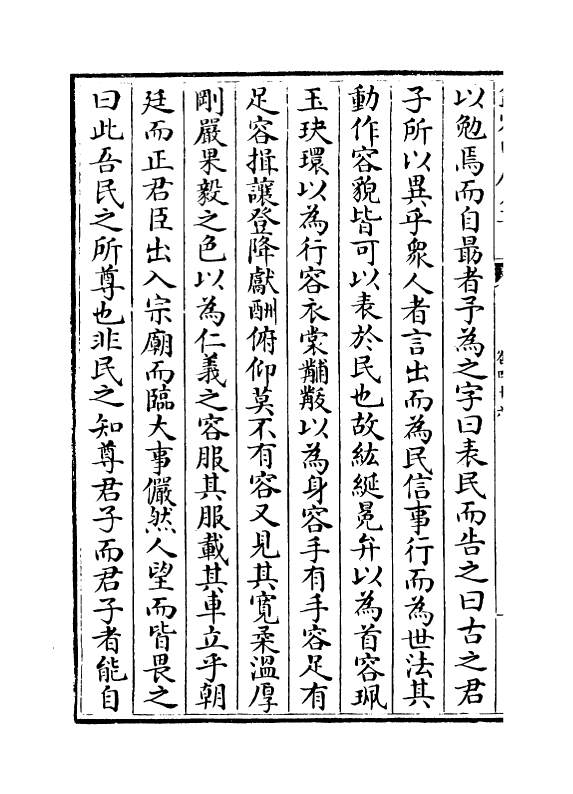 以勉焉而自最者予為之字曰表民而告之曰古之君
子所以異乎衆人者言出而為民信事行而為世法其
動作容貌皆可以表於民也故紘綖冕弁以為首容珮
玉玦環以為行容衣裳黼黻以為身容手有手容足有
足容揖讓登降獻酬俯仰莫不有容又見其寛柔溫厚
剛嚴果毅之色以為仁義之容服其服載其車立乎朝
廷而正君臣出入宗廟而臨大事儼然人望而皆畏之
曰此吾民之所尊也非民之知尊君子而君子者能自